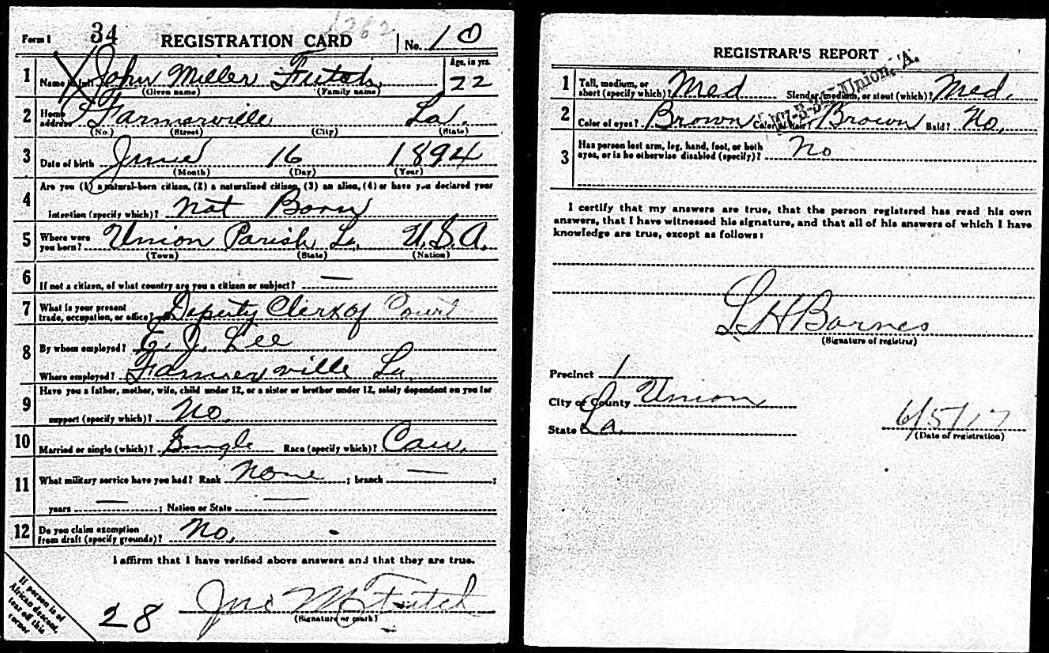 Form 1 34 REGISTRATION CARD 1262 No. 10
1 Name in full John Miller Futch Age, in yrs. 22
(Given name) (Family name)
2 Home address Farmerville La.
(No.) (Street) (City) (State)
3 Date of birth June 16 1894
(Month) (Day) (Year)
4 Are you (1) a natural-born citizen, (2) a naturalized citizen, (3) an alien, (4) or have you declared your
intention (specify which)? Nat Born
5 Where were you born? Union Parish La U.S.A.
(Town) (State) (Nation)
6 If not a citizen, of what country are you a citizen or subject? —
7 What is your present trade, occupation, or office? Deputy Clerk of Court
8 By whom employed? E. J. Lee
Where employed? Farmerville La
9 Have you a father, mother, wife, child under 12, or a sister or brother under 12, solely dependent on you for
support (specify which)? No.
10 Married or single (which)? Single Race (specify which)? Cau.
11 What military service have you had? Rank None ; branch — ;
years — ; Nation or State —
12 Do you claim exemption from draft (specify grounds)? No.
I affirm that I have verified above answers and that they are true.
Jno M Futch
(Signature or mark)
If person is of African descent, tear off this corner
28
REGISTRAR'S REPORT
1 Tall, medium, or short (specify which)? Med Slender, medium, or stout (which)? Med.
2 Color of eyes? Brown Color of hair? Brown Bald? No.
3 Has person lost arm, leg, hand, foot, or both eyes, or is he otherwise disabled (specify)? No
I certify that my answers are true, that the person registered has read his own
answers, that I have witnessed his signature, and that all of his answers of which I have
knowledge are true, except as follows:
L H Barnes
(Signature of registrar)
Precinct 1
City or County Union
State La. 6/5/17
(Date of registration)